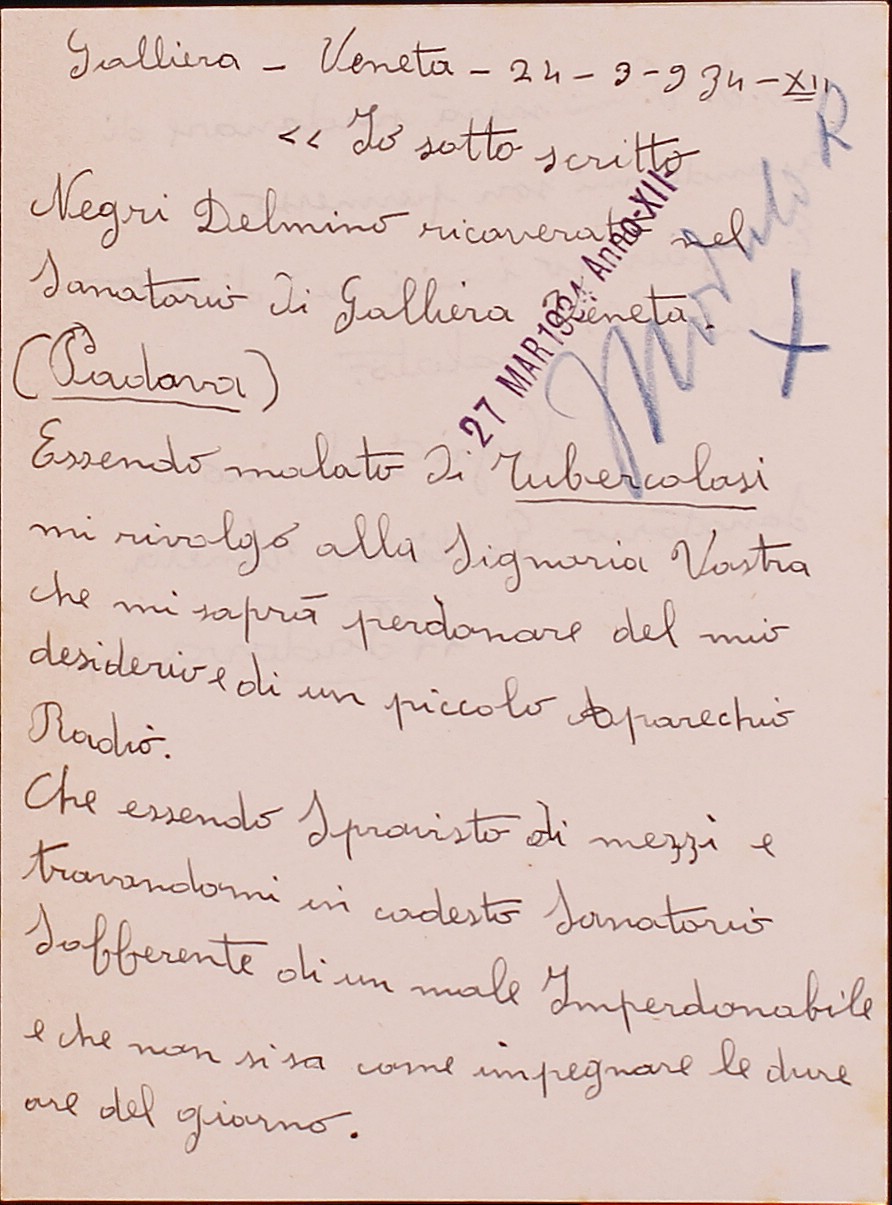 Galliera - Veneta - 24 - 3 - 934 - XII
<< Io sotto scritto
Negri Delmino ricoverato nel
Sanatorio di Galliera Veneta.
(Padova)
27 MAR 1934 Anno-XII-
Essendo malato di Tubercolosi
mi rivolgo alla Signoria Vostra
che mi saprà perdonare del mio
desiderio e di un piccolo Aparechio
Radio.
Che essendo Sprovisto di mezzi e
trovandomi in codesto Sanatorio
Sofferente di un male Imperdonabile
e che non si sa come impegnare le dure
ore del giorno.